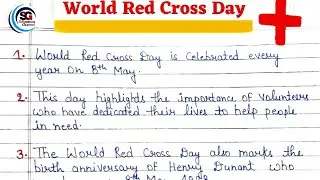 SG
World Red Cross Day
1. World Red Cross Day is celebrated every
year on 8th May.
2. This day highlights the importance of volunteers
who have dedicated their lives to help people
in need.
3. The World Red Cross Day also marks the
birth anniversary of Henry Dunant who